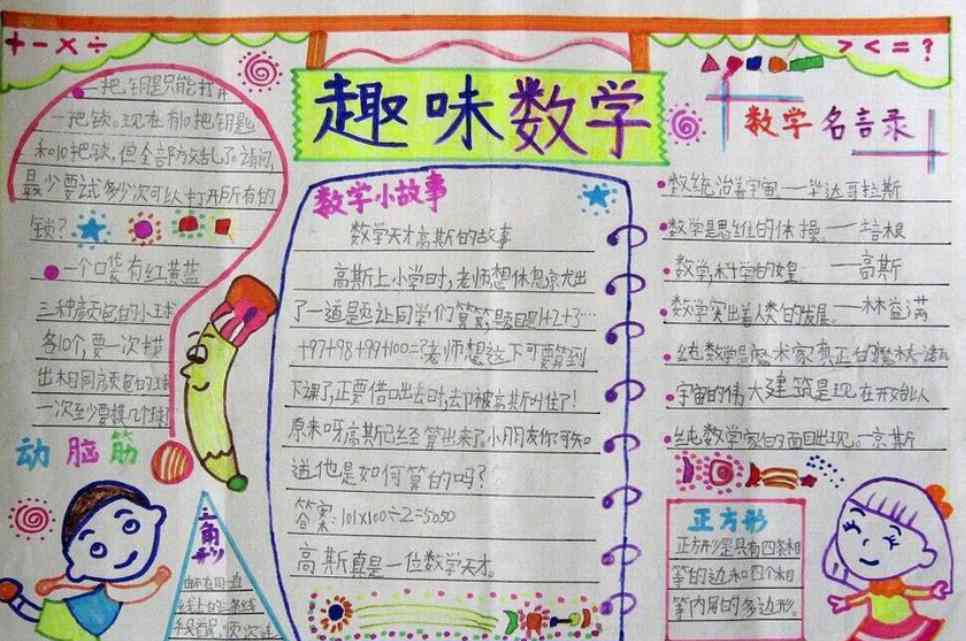 + - × ÷
> < = ?
趣味数学
一把钥匙只能打开
一把锁。现在有10把钥匙
和10把锁,但全部放乱了。请问,
最少要试多少次可以打开所有的
锁?
一个口袋有红黄蓝
三种颜色的小球
各10个,要一次摸
出相同颜色的球
一次至少要摸几个球
动脑筋
三角形
数学小故事
数学天才高斯的故事
高斯上小学时,老师想休息就出
了一道题让同学们算算,题目是1+2+3…
+97+98+99+100=?老师想这下可要算到
下课了,正要借口出去时,却被高斯叫住了!
原来呀,高斯已经算出来了,小朋友你可知
道他是如何算的吗?
答案:101×100÷2=5050
高斯真是一位数学天才。
数学名言录
数统治着宇宙——毕达哥拉斯
数学是思维的体操——培根
数学,科学的女皇——高斯
数学突出着人类的发展。——林益满
纯数学是魔术家真正的魔杖
宇宙的伟大建筑是现在开始以
纯数学家的面目出现。—京斯
正方形
正方形是具有四条相
等的边和四个相
等内角的多边形。